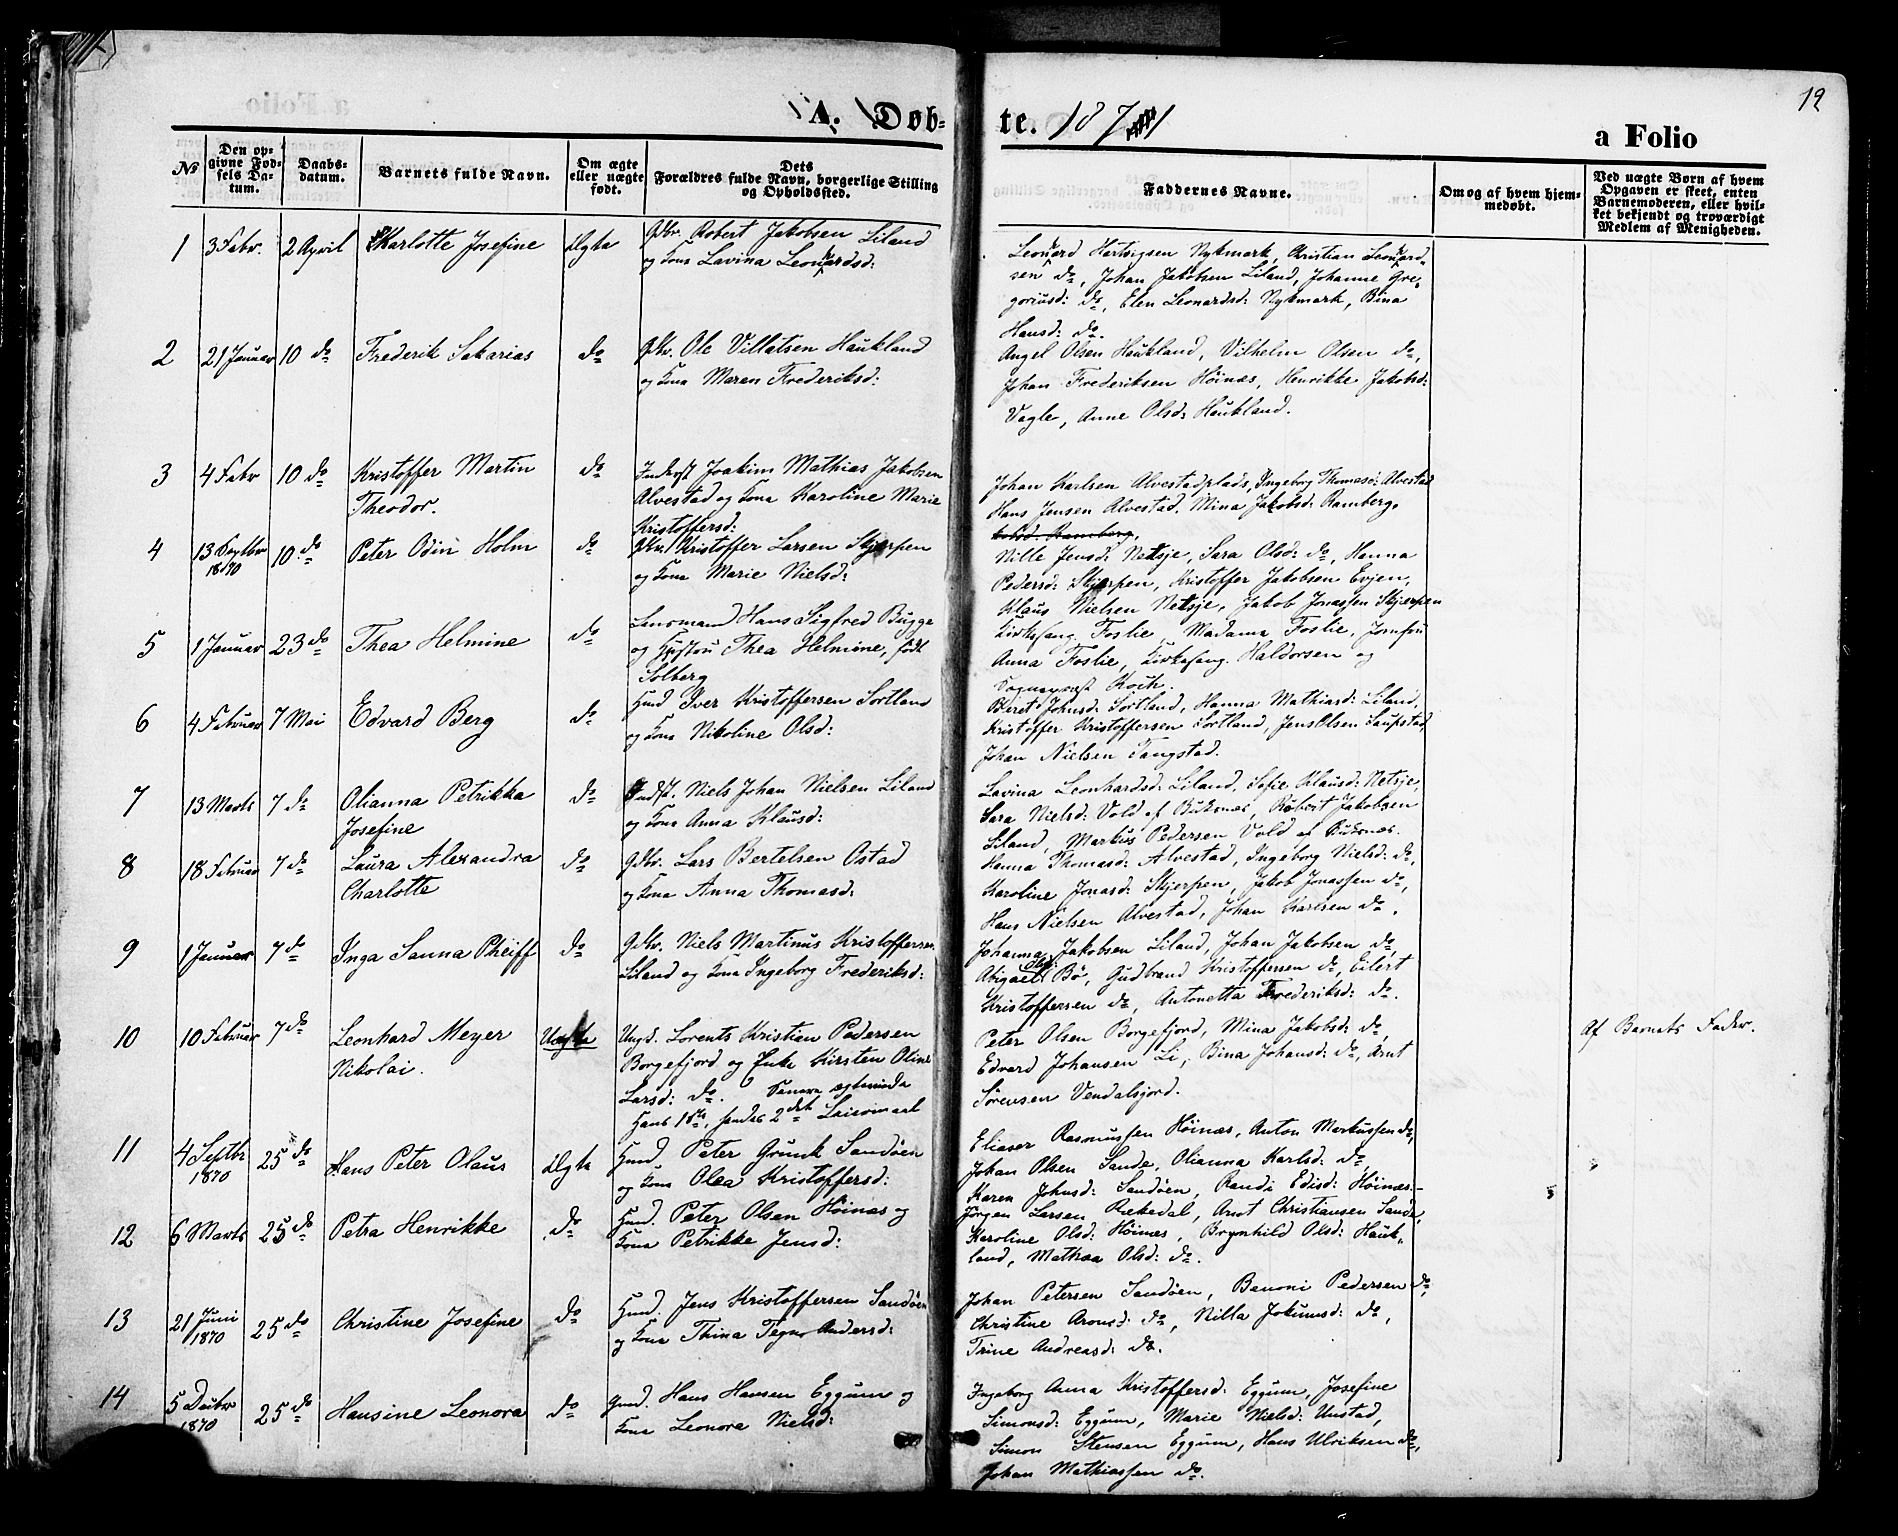 12
A. Døb-
te. 1871
a Folio
№
Den op-
givne Fød-
sels Da-
tum.
Daabs-
datum.
Barnets fulde Navn.
Om ægte
eller uægte
født.
Dets
Forældres fulde Navn, borgerlige Stilling
og Opholdssted.
Faddernes Navne.
Om og af hvem hjem-
medøbt.
Ved uægte Børn af hvem
Opgaven er skeet, enten
Barnemoderen, eller hvil-
ket bekjendt og troværdigt
Medlem af Menigheden.
1 3 Febr. 2 April Charlotte Josefine Ægte Gbr. Robert Jakobsen Liland
og Kona Lavina Leonardsd:
Leonard Hartvigsen Nykmark, Christian Leonard-
sen do, Johan Jakobsen Liland, Johanne Gre-
goriusd: do, Elen Leonardsd: Nykmark, Bina
Hansd: do.
2 21 Januar 10 do Frederik Sakarias do Gbr. Ole Villatsen Haukland
og Kona Maren Frederiksd:
Angel Olsen Haukland, Vilhelm Olsen do,
Johan Frederiksen Höinæs, Henrikke Jakobsd:
Vagle, Anne Olsd: Haukland.
3 4 Febr 10 do Kristoffer Martin
Theodor.
do Inderst Joakim Mathias Jakobsen
Alvestad og Kona Karoline Marie
Kristoffersd:
Johan Karlsen Alvestadplads, Ingeborg Thomasd: Alvestad
Hans Jensen Alvestad, Mina Jakobsd: Ramberg.
4 13 Septbr
1870
10 do Peter Odin Holm do Gbr. Kristoffer Larsen Skjerpen
og Kona Marie Nielsd:
Nille Jensd: Netsje, Sara Olsd: do, Hanna
Pedersd: Skjerpen, Kristoffer Jakobsen Evjen,
Klaus Nielsen Netsje, Jakob Jonassen Skjerpen
5 1 Januar 23 do Thea Helmine do Lensmand Hans Sigfred Bugge
og Hustru Thea Helmine, født
Solberg
Kirkesang. Foslie, Madame Foslie, Jomfru
Anna Foslie, Kirkesang. Haldorsen og
Sognepræst Koch.
6 4 Februar 7 Mai Edvard Berg do Hmd Iver Kristoffersen Sortland
og Kona Nikoline Olsd:
Beret Johnsd: Sortland, Hanna Mathiasd: Liland,
Kristoffer Kristoffersen Sortland, Jens Olsen Saupstad,
Johan Nielsen Tangstad.
7 13 Marts 7 do Olianna Petrikka
Josefine
do Indst. Niels Johan Nielsen Liland
og Kona Anna Klausd:
Lavina Leonhardsd: Liland, Sofie Klausd: Netsje,
Sara Nielsd: Vold af Buksnæs, Robert Jakobsen
Liland, Markus Pedersen Vold af Buksnæs.
8 18 Februar 7 do Laura Alexandra
Charlotte
do Gbr. Lars Bertelsen Ostad
og Kona Anna Thomasd:
Hanna Thomasd: Alvestad, Ingeborg Nielsd: do,
Karoline Jonasd: Skjerpen, Jakob Jonassen do,
Hans Nielsen Alvestad, Johan Karlsen do.
9 1 Januar 7 do Inga Sanna Pheiff do Gbr. Niels Martinus Kristoffersen
Liland og Kona Ingeborg Frederiksd:
Johanna Jakobsen Liland, Johan Jakobsen do,
Abigael Bö, Gudbrand Kristoffersen do, Eilert
Kristoffersen do, Antonetta Frederiksd: do.
10 10 Februar 7 do Leonhard Meyer
Nikolai.
Uægte Ungk. Lorents Kristian Pedersen
Borgefjord og Pike Kirsten Oline
Larsd: do.
Hans 1ste, hendes 2det Leiermaal
Peter Olsen Borgefjord, Mina Jakobsd: do,
Edvard Johansen Li, Bina Johansd: do, Arnt
Sörensen Vendalsjord.
Af Barnets Fader.
11 4 Septbr
1870
25 do Hans Peter Olaus Ægte Hmd. Peter Grunk Sandöen
og Kona Olea Kristoffersd:
Eliaser Rasmussen Höinæs, Anton Markussen do,
Johan Olsen Sande, Olianna Karlsd: do,
Karen Johnsd: Sandöen, Randi Edisd: Höinæs.
12 6 Marts 25 do Petra Henrikke do Hmd. Peter Olsen Höinæs og
Kona Petrikke Jensd:
Jörgen Larsen Rekedal, Arnt Christiansen Sande,
Karoline Olsd: Höinæs, Brynhild Olsd: Hauk-
land, Mathea Olsd: do.
13 21 Juni
1870
25 do Christine Josefine do Hmd. Jens Kristoffersen Sandöen
og Kona Thina Tegno Andersd:
Johan Petersen Sandöen, Benoni Pedersen do,
Christine Aronsd: do, Nilla Jokumsd: do,
Trine Andreasd: do.
14 5 Decbr
1870
25 do Hansine Leonora do Hmd. Hans Hansen Eggum og
Kona Leonora Nielsd:
Ingeborg Anna Kristoffersd: Eggum, Josefine
Simonsd: Eggum, Marie Nielsd: Unstad,
Simon Stensen Eggum, Hans Ulriksen do,
Johan Mathiassen do.